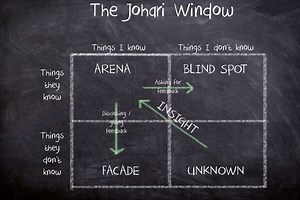 The Johari Window
Things I know
Things I don't know
Things
they
know
ARENA
BLIND SPOT
Asking for
Feedback
Things
they
don't
know
Disclosing /
Feedback
INSIGHT
FACADE
UNKNOWN